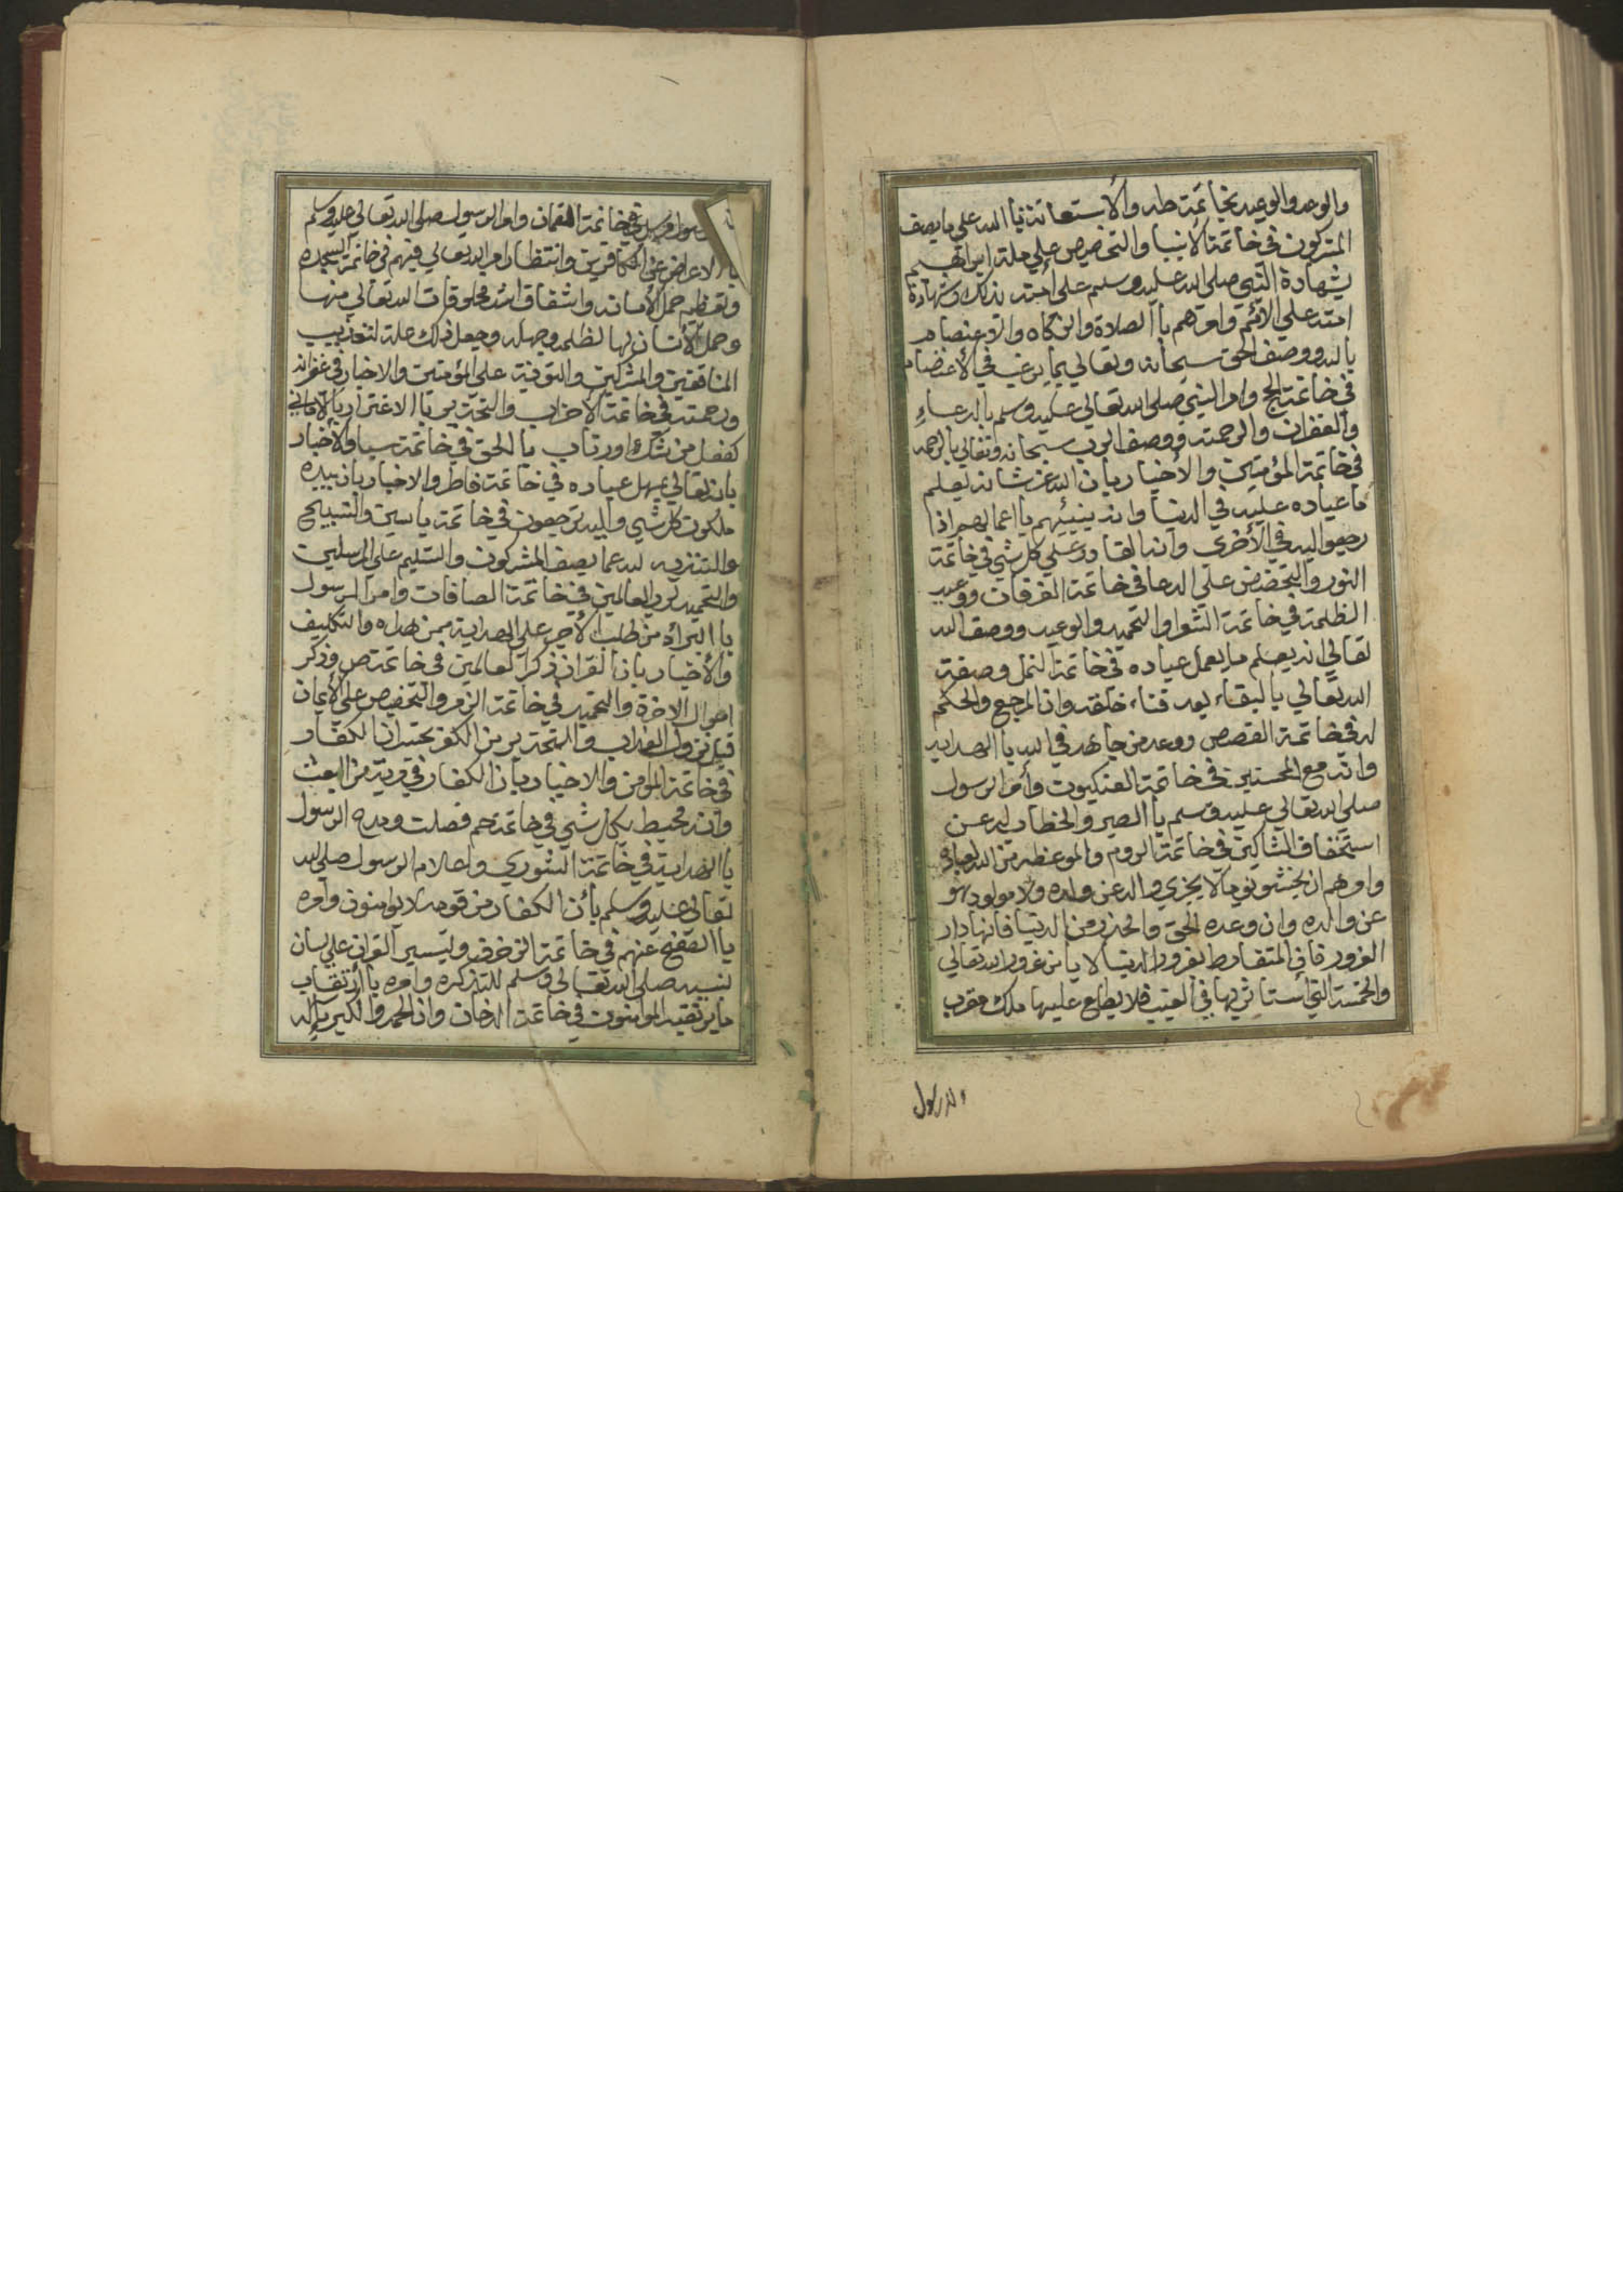 والوعد والوعيد بخاتمة طه والأستعانة باالله على ما يصف
المشركون في خاتمة الانبيا والتخصيص على ملة ابراهيم
بشهادة النبي صلى الله عليه وسلم على أمته بذلك وشهادة
امته على الأمم وامرهم باالصلاة والزكاه والاعتصام
بالله ووصف الحق سبحانه وتعالى بما يرغب في الأعتصام
في خاتمة الحج وامر النبي صلى الله تعالى عليه وسلم بالدعاء
والغفران والرحمة ووصف الرب سبحانه وتعالى بالرحمه
في خاتمة المؤمنين والأخبار بان الله عز شانه يعلم
ما عباده عليه في الدنيا وانه ينبئهم بااعمالهم اذا
رجعوا اليه في الأخرى وانه القادر على كل شي في خاتمة
النور والتحضيض على الدعا في خاتمة الفرقان ووعيد
الظلمة في خاتمة الشعرا والتحميد والوعيد ووصف الله
تعالى انه يعلم ما يعمل عباده في خاتمة النمل وصفة
الله تعالى بالبقاء بعد فناء خلقه وان المرجع والحكم
له في خاتمة القصص ووعد من جاهد في الله باالهدايه
وانه مع المحسنين في خاتمة العنكبوت وأمر الرسول
صلى الله تعالى عليه وسلم باالصبر والخطاب له عن
استخفاف الشاكين في خاتمة الروم والموعظه من الله لعباده
وامرهم ان يخشو يوما لا يجزي والد عن ولده ولا مولود هو
عن والده وان وعده الحق والحذر من الدنيا فانها دار
الغرور فان المتفارط بغرور الدنيا لا يامن غرور الله تعالى
والخمسة التي أستاثر بها في الغيب فلا يطلع عليها ملك مقرب
ولا رسول
رسول مرسل في خاتمة القمان وامر الرسول صلى الله تعالى عليه وسلم
باالاعراض عن الكافرين وانتظار امر الله تعالى فيهم في خاتمة السجده
وتعظيم حمل الأمانه واشفاق اشد مخلوقات الله تعالى منها
وحمل الأنسان لها لظلمه وجهله وجعل ذلك علة لتعذيب
المنافقين والمشركين والتوبة على المؤمنين والاخبار في غفرانه
ورحمته في خاتمة الأحزاب والتحذير باالاغترار بالأماني
كفعل من شك اورتاب بالحق في خاتمة سبا والأخبار
بانه تعالى يمهل عباده في خاتمة فاطر والاخبار بان بيده
ملكوت كل شي واليه ترجعون في خاتمة ياسين والتسبيح
والتنزيه لله عما يصف المشركون والتسليم على المرسلين
والتحميد لرب العالمين في خاتمة الصافات وامر الرسول
باالبرأة من طلب الأجر على الهداية ممن هداه والتكليف
والأخبار بان القران ذكرا لعالمين في خاتمة ص وذكر
احوال الاخرة والتحميد في خاتمة الزمر والتحضيض على الأيمان
قبل نزول العذاب والتحذير من الكفر بخسران الكفار
في خاتمة المؤمن والاخبار بان الكفار في مرية من البعث
وانه محيط بكل شي في خاتمة حم فصلت ومدح الرسول
باالهداية في خاتمة الشورى واعلام الرسول صلى الله
تعالى عليه وسلم بأن الكفار من قومه لا يؤمنون وامره
باالصفح عنهم في خاتمة الزخرف وتيسير القران على لسان
نبيه صلى الله تعالى وسلم للتذكره وامره باارتقاب
ما يرتقبه المؤمنون في خاتمة الدخان وان الحمد والكبرياء له